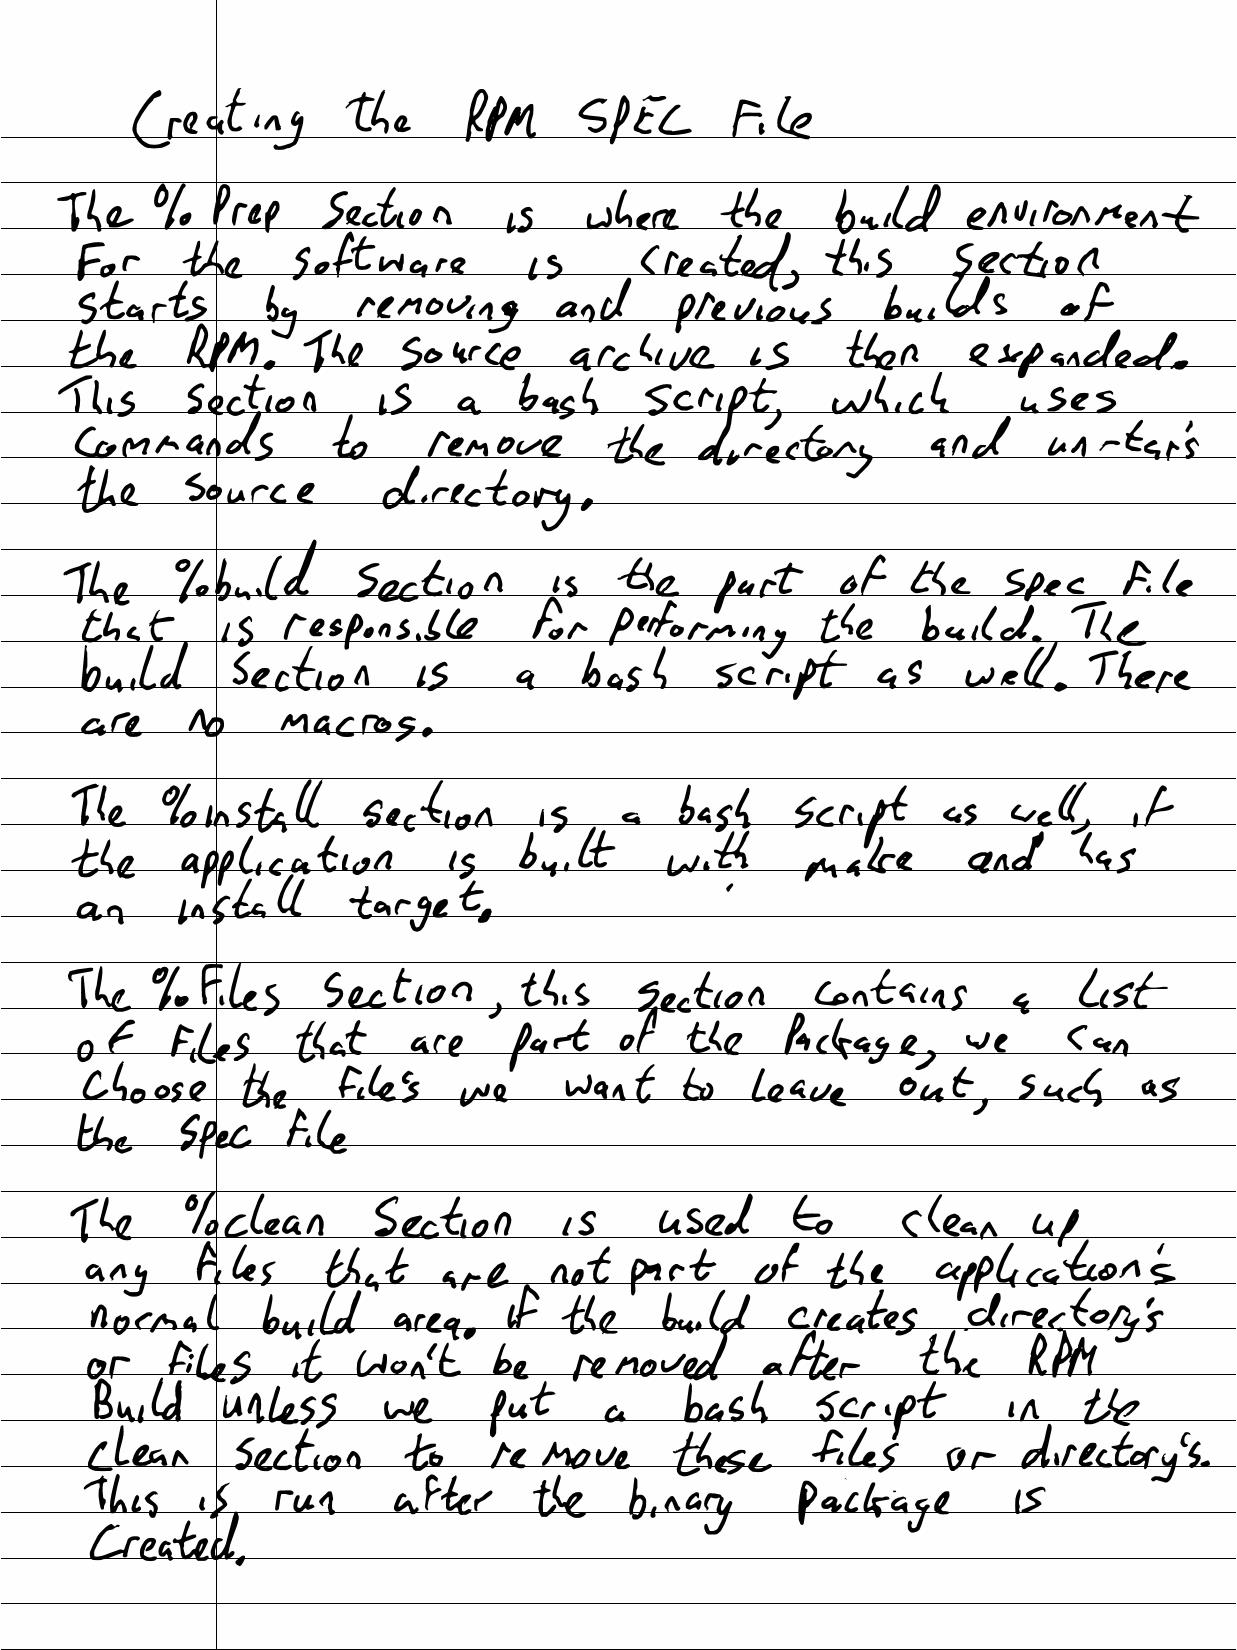 Creating the RPM SPEC File
The %Prep Section is where the build environment
For the software is created, this section
starts by removing and previous builds of
the RPM. The source archive is then expanded.
This section is a bash script, which uses
commands to remove the directory and un-tar's
the source directory.
The %build Section is the part of the spec file
that is responsible for performing the build. The
build section is a bash script as well. There
are no macros.
The %install section is a bash script as well, if
the application is built with make and has
an install target.
The %Files Section, this section contains a list
of files that are part of the package, we can
choose the file's we want to leave out, such as
the spec file
The %clean Section is used to clean up
any files that are not part of the application's
normal build area. if the build creates directory's
or files it won't be removed after the RPM
Build unless we put a bash script in the
clean section to remove these files or directory's.
This is run after the binary package is
Created.